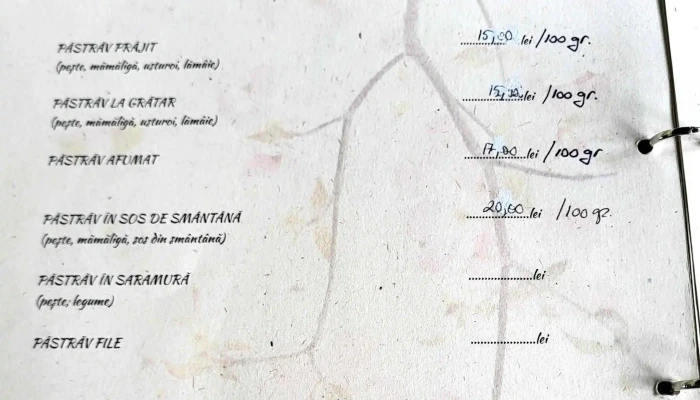 PĂSTRĂV PRĂJIT ..........15,00 lei /100 gr.
(pește, mămăligă, usturoi, lămâie)
PĂSTRĂV LA GRĂTAR ..........15,00 lei /100 gr.
(pește, mămăligă, usturoi, lămâie)
PĂSTRĂV AFUMAT ..........17,00 lei /100 gr
PĂSTRĂV ÎN SOS DE SMÂNTÂNĂ ..........20,00 lei /100 gr.
(pește, mămăligă, sos din smântână)
PĂSTRĂV ÎN SARAMURĂ ..........lei
(pește, legume)
PĂSTRĂV FILE ..........lei